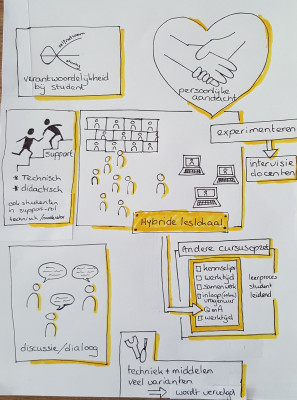 verantwoordelijkheid
bij student
persoonlijke
aandacht
experimenteren
Support
* Technisch
* didactisch
ook studenten
in support-rol
intervisie
docenten
Hybride leslokaal
Andere cursusopzet
kennisclips
werktijd
samenwerk
inloop
vragenuur
werktijd
leerproces
student
leidend
discussie/dialoog
techniek + middelen
veel varianten
wordt verwacht